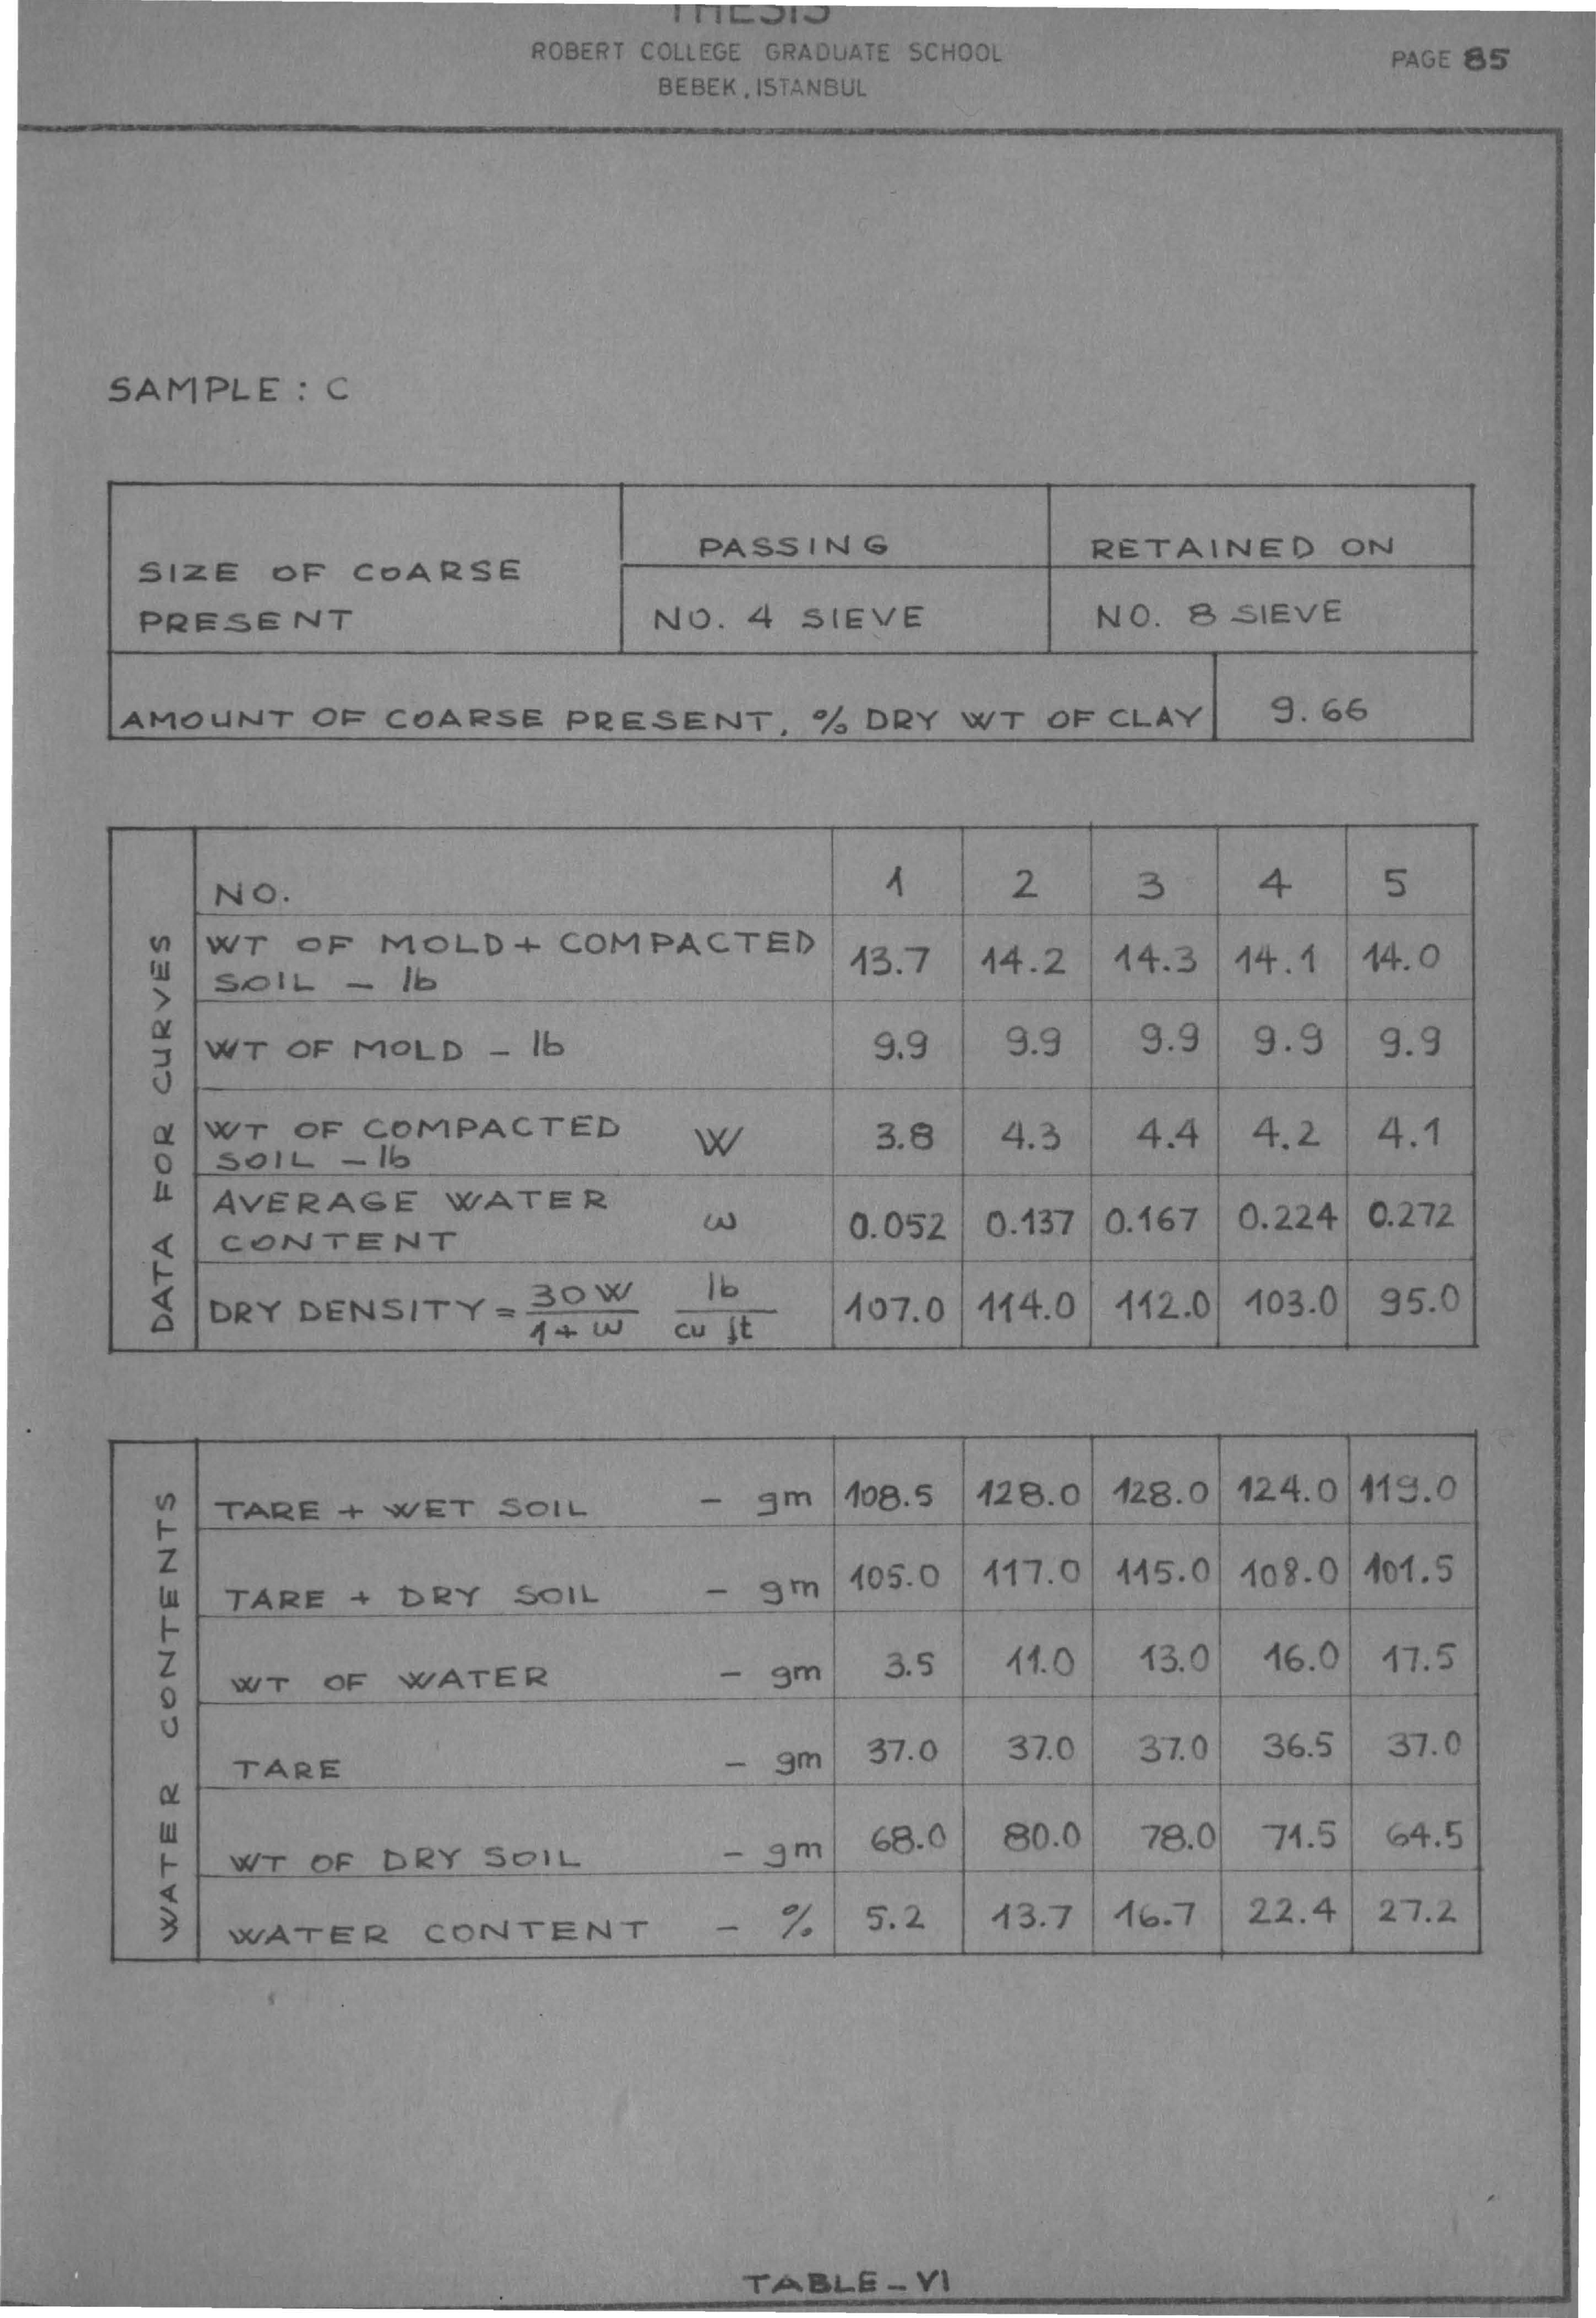 THESIS
ROBERT COLLEGE GRADUATE SCHOOL
BEBEK, ISTANBUL
PAGE 85
SAMPLE : C
SIZE OF COARSE PRESENT
PASSING
RETAINED ON
NO. 4 SIEVE
NO. 8 SIEVE
AMOUNT OF COARSE PRESENT, % DRY WT OF CLAY 9.66
DATA FOR CURVES
NO. 1 2 3 4 5
WT OF MOLD + COMPACTED
SOIL - lb 13.7 14.2 14.3 14.1 14.0
WT OF MOLD - lb 9.9 9.9 9.9 9.9 9.9
WT OF COMPACTED
SOIL - lb W 3.8 4.3 4.4 4.2 4.1
AVERAGE WATER
CONTENT ω 0.052 0.137 0.167 0.224 0.272
DRY DENSITY = 30W / 1+ω lb / cu ft 107.0 114.0 112.0 103.0 95.0
WATER CONTENTS
TARE + WET SOIL - gm 108.5 128.0 128.0 124.0 119.0
TARE + DRY SOIL - gm 105.0 117.0 115.0 108.0 101.5
WT OF WATER - gm 3.5 11.0 13.0 16.0 17.5
TARE - gm 37.0 37.0 37.0 36.5 37.0
WT OF DRY SOIL - gm 68.0 80.0 78.0 71.5 64.5
WATER CONTENT - % 5.2 13.7 16.7 22.4 27.2
TABLE - VI